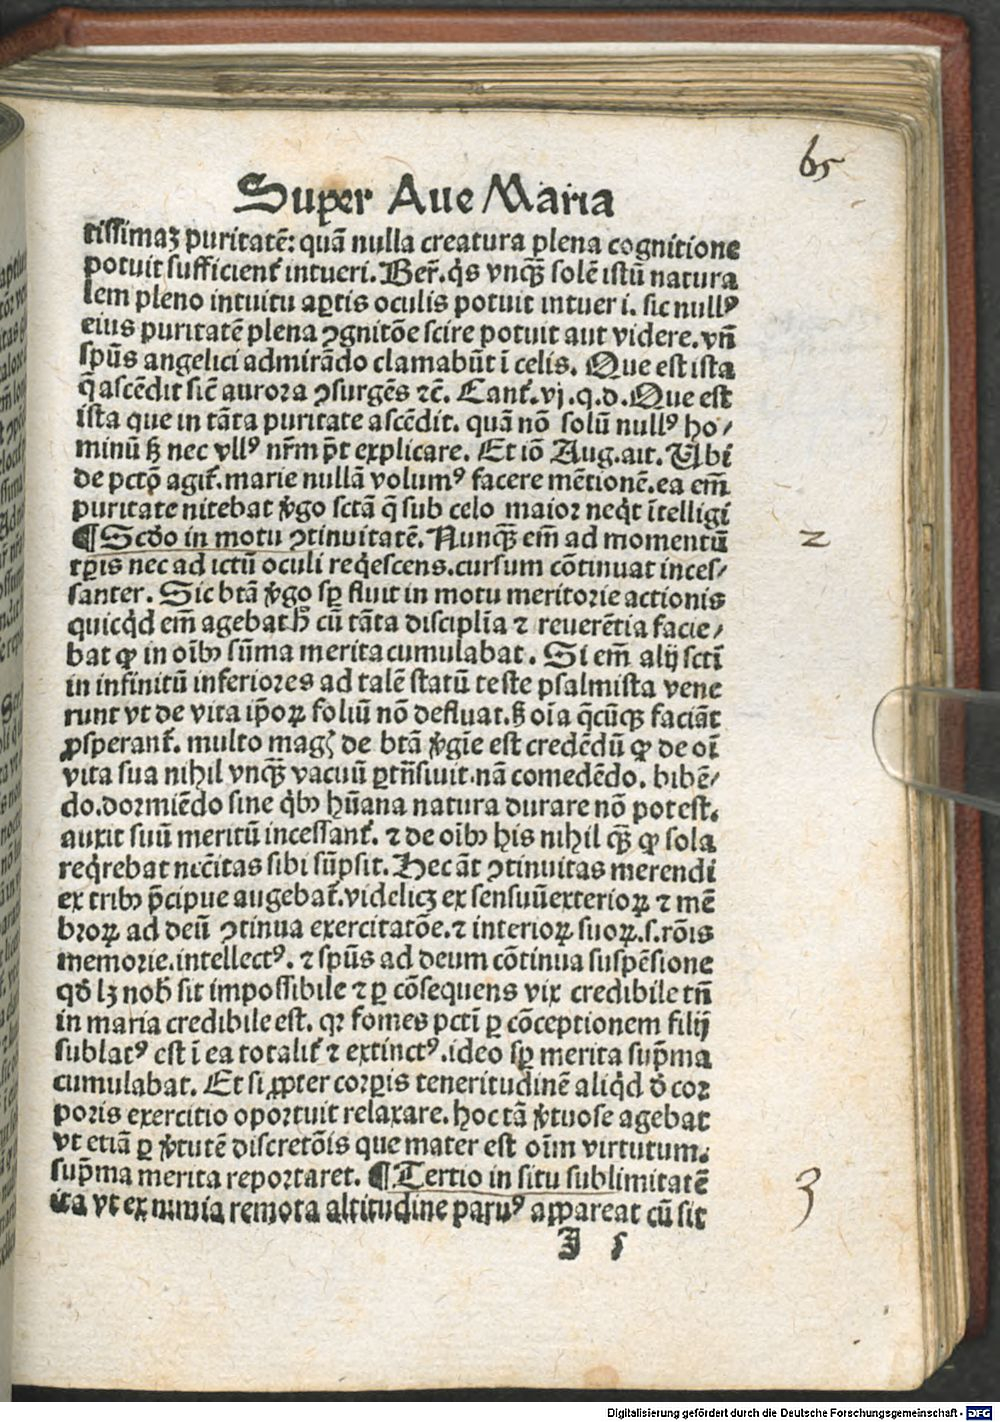 65
Super Aue Maria
tissimaʒ puritatē: quā nulla creatura plena cognitione
potuit sufficient̉ intueri. Ber̄. q̇s vnqꝫ solē istū natura
lem pleno intuitu aꝑtis oculis potuit intueri. sic nullꝰ
eius puritatē plena ꝯgnitōe scire potuit aut videre. vñ
spūs angelici admirādo clamabūt ī celis. Que est ista
q̄ ascēdit sic̄ aurora ꝯsurgēs ⁊c̄. Cant̉. vj. q.d. Que est
ista que in tāta puritate ascēdit. quā nō solū nullꝰ ho⸗
minū sꝫ nec vllꝰ nr̄m p̄t explicare. Et iō Aug. ait. Vbi
de pctō agit̉. marie nullā volumꝰ facere mētionē. ea em̄
puritate nitebat ꝟgo sctā q̄ sub celo maior neq̇t ītelligi
¶ Scd̄o in motu ꝯtinuitatē. Nunqꝫ em̄ ad momentū
tꝑis nec ad ictū oculi req̇escens. cursum cōtinuat inces⸗
santer. Sic btā ꝟgo sꝑ fluit in motu meritorie actionis
quicq̇d em̄ agebat h̄ cū tāta disciplīa ⁊ reuerētia facie⸗
bat ꝙ in oībꝫ sūma merita cumulabat. Si em̄ alij sctī
in infinitū inferiores ad talē statū teste psalmista vene
runt vt de vita ip̄oꝝ foliū nō defluat. sꝫ oīa q̄cūqꝫ faciāt
ꝓsperant̉. multo magꝭ de btā ꝟgīe est credēdū ꝙ de oī
vita sua nihil vnqꝫ vacuū ꝑtñsiuit. nā comedēdo. bibē⸗
do. dormiēdo sine q̇bꝫ hūana natura durare nō potest.
auxit suū meritū incessant̉. ⁊ de oībꝫ his nihil qꝫ ꝙ sola
req̇rebat nēcitas sibi sūpsit. Hec āt ꝯtinuitas merendi
ex tribꝫ p̄cipue augebat̉. videlicꝫ ex sensuū exterioꝝ ⁊ mē
broꝝ ad deū ꝯtinua exercitatōe. ⁊ interioꝝ suoꝝ. s. rōis
memorie. intellectꝰ. ⁊ spūs ad deum cōtinua suspēsione
qd̄ lꝫ nob̄ sit impossibile ⁊ ꝑ cōsequens vix credibile tñ
in maria credibile est. qꝛ fomes pctī ꝑ cōceptionem filij
sublatꝰ est ī ea totalit̉ ⁊ extinctꝰ. ideo sꝑ merita sup̄ma
cumulabat. Et si ꝓpter corꝑis teneritudinē aliq̇d d̄ cor
poris exercitio oportuit relaxare. hoc tā ꝟtuose agebat
vt etiā ꝑ ꝟtutē discretōis que mater est oīm virtutum.
sup̄ma merita reportaret. ¶ Tertio in situ sublimitatē
ita vt ex nimia remota altitudine paruꝰ appareat cū sit
I 5
2
3
Digitalisierung gefördert durch die Deutsche Forschungsgemeinschaft - DFG